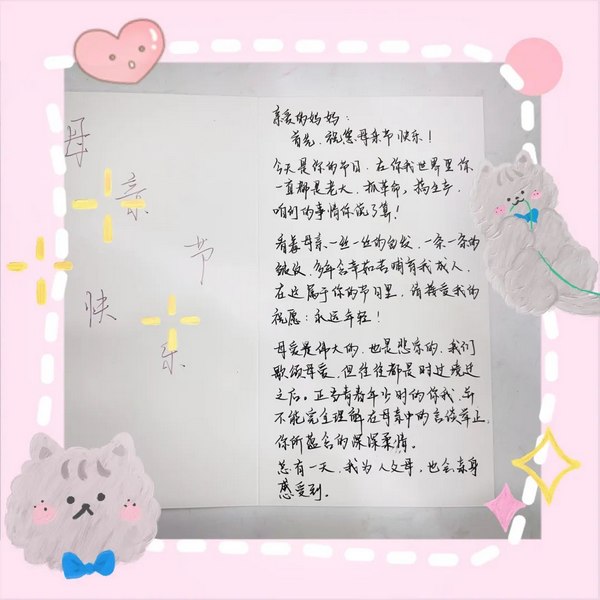 母
亲
节
快
乐
亲爱的妈妈：
首先，祝您母亲节快乐！
今天是你的节日，在你我世界里你
一直都是老大，抓革命，搞生产，
咱们的事情你说了算！
看着母亲一丝一丝的白发，一条一条的
皱纹，多年含辛茹苦哺育我成人，
在这属于你的节日里，请接受我的
祝愿：永远年轻！
母爱是伟大的，也是悲哀的，我们
歌颂母爱，但往往都是时过境迁
之后。正当青春年少时的你我，并
不能完全理解在母亲中的言谈举止，
你所蕴含的深深柔情。
总有一天，我为人父母，也会亲身
感受到。